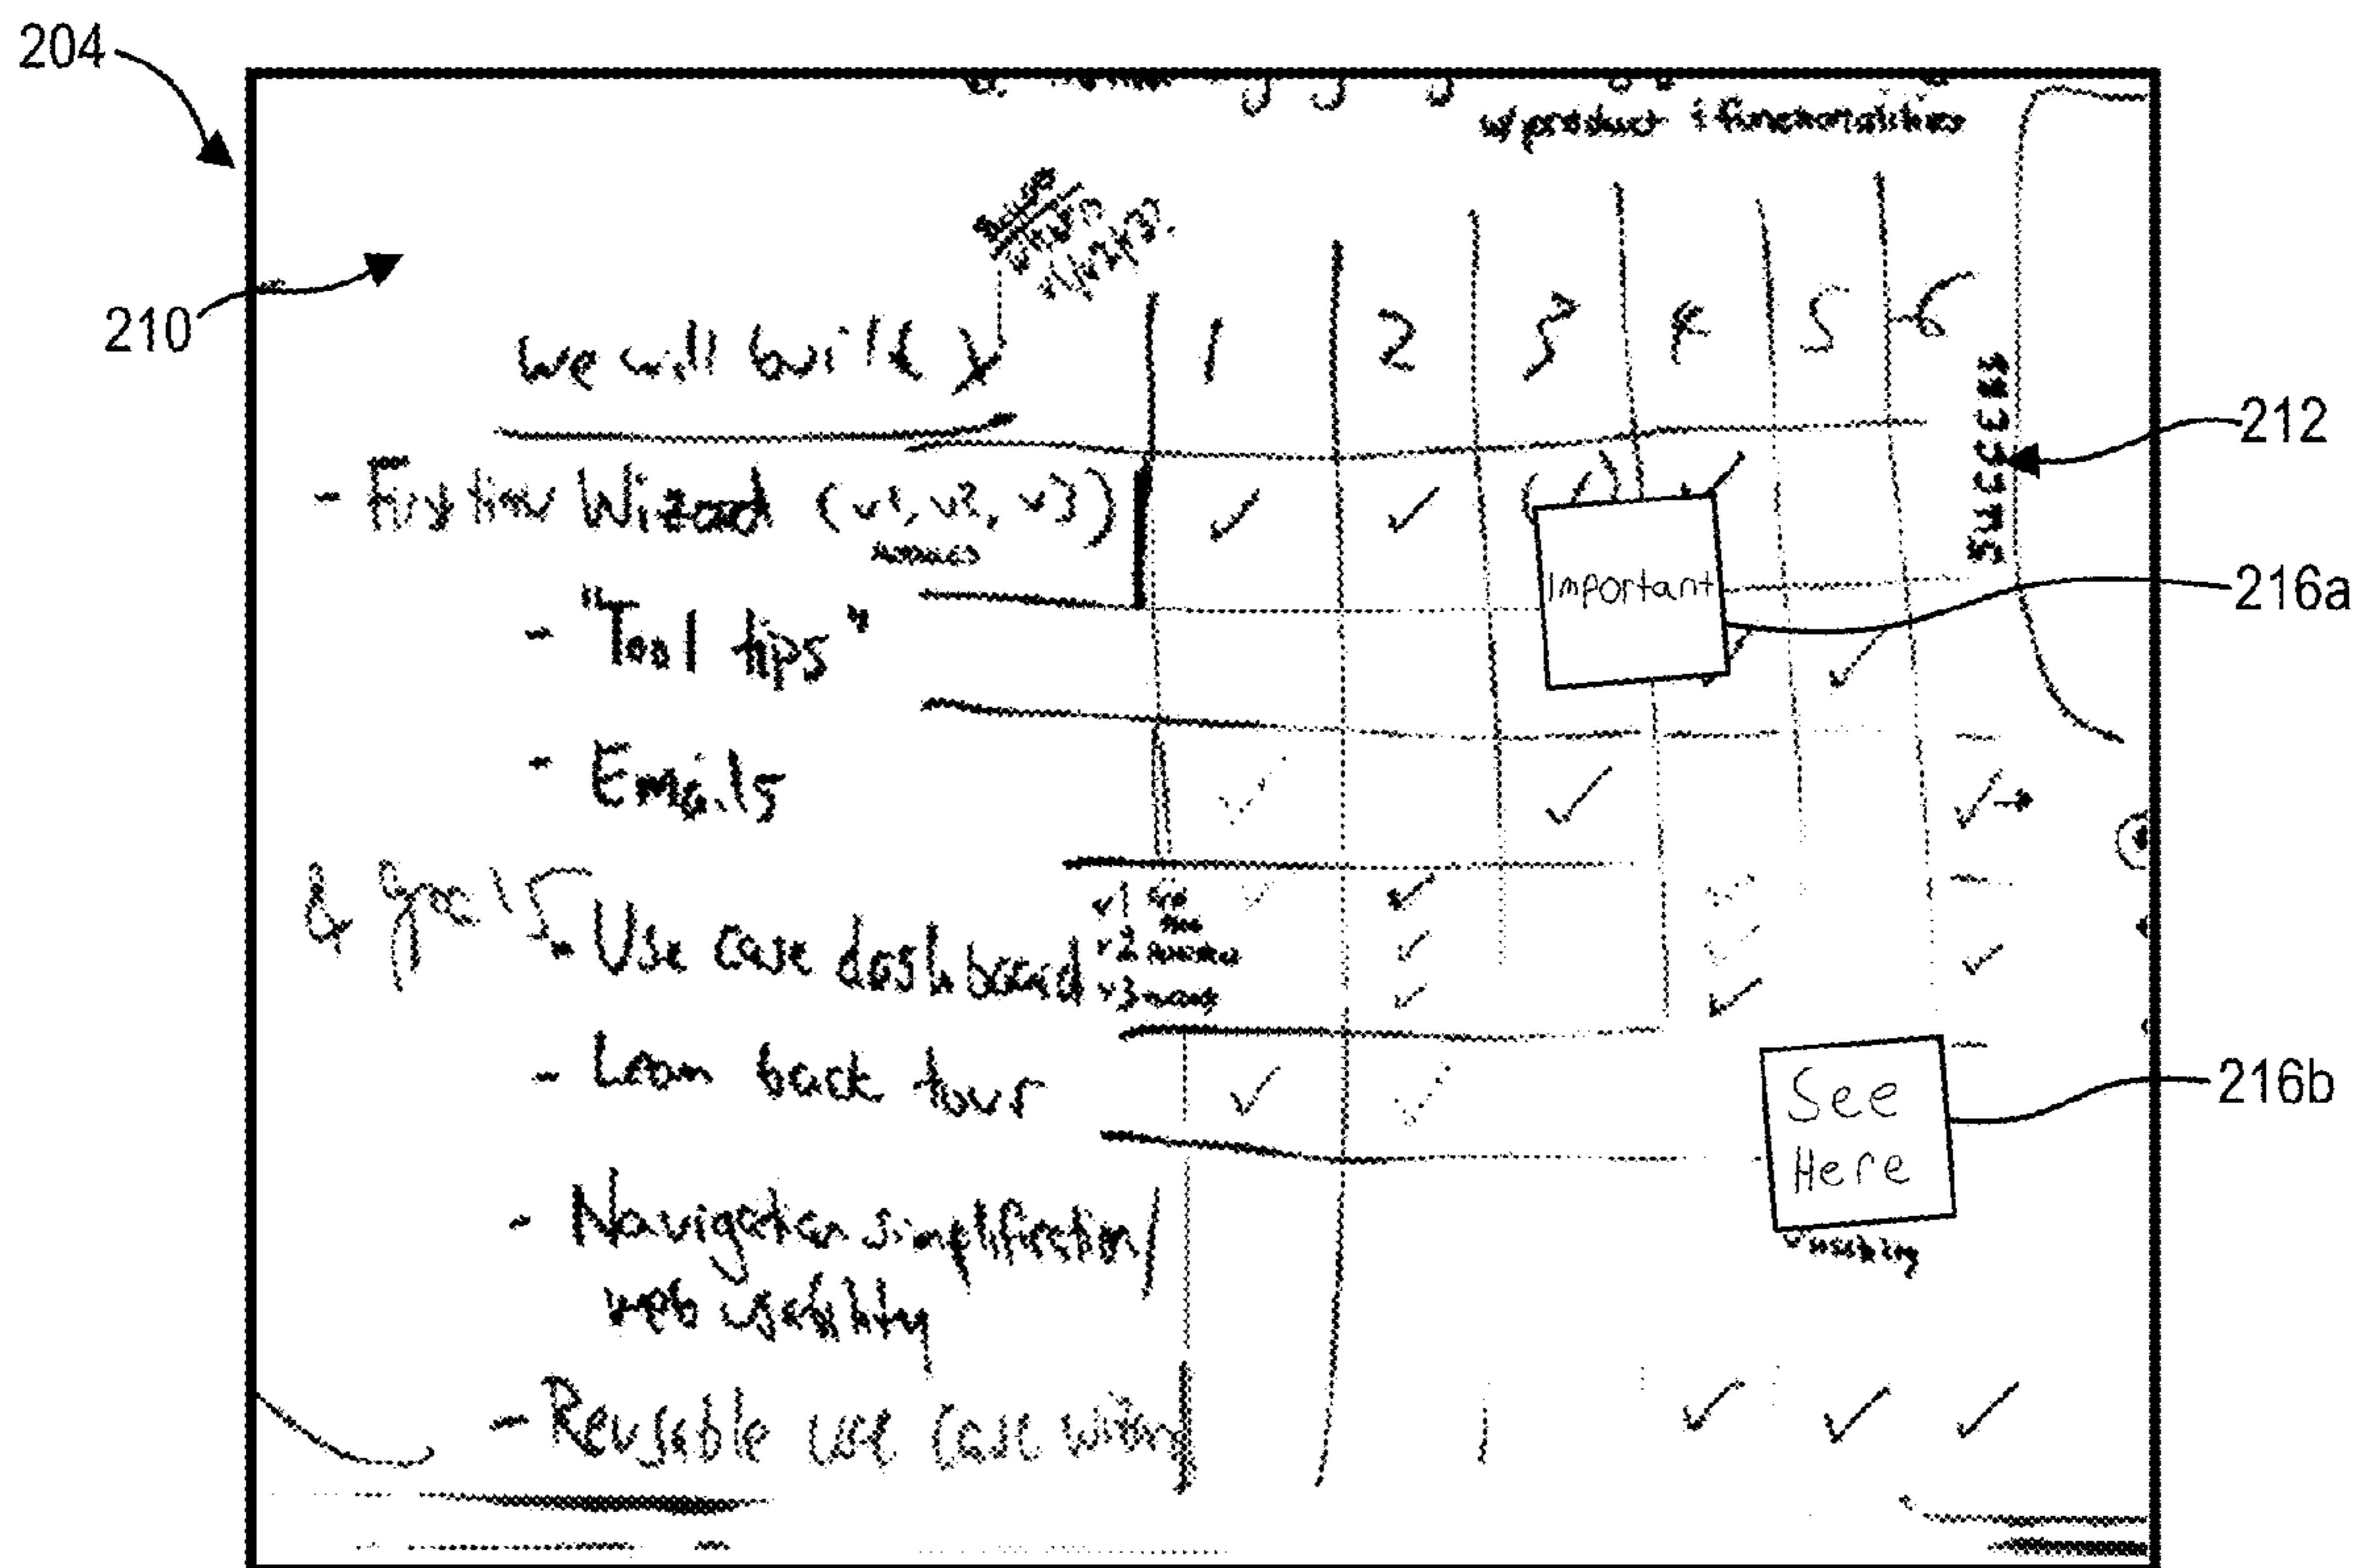 204
w/product & functionalities
210
we will build
1 2 3 4 5 6
SUCCESS
212
- First time Wizard (v1, v2, v3)
Important
216a
- "Tool tips"
- Emails
& goals
- Use case dashboard
v1
v2
v3
- Lean back tour
See
Here
216b
- Navigation simplification/
web usability
- Reusable use case